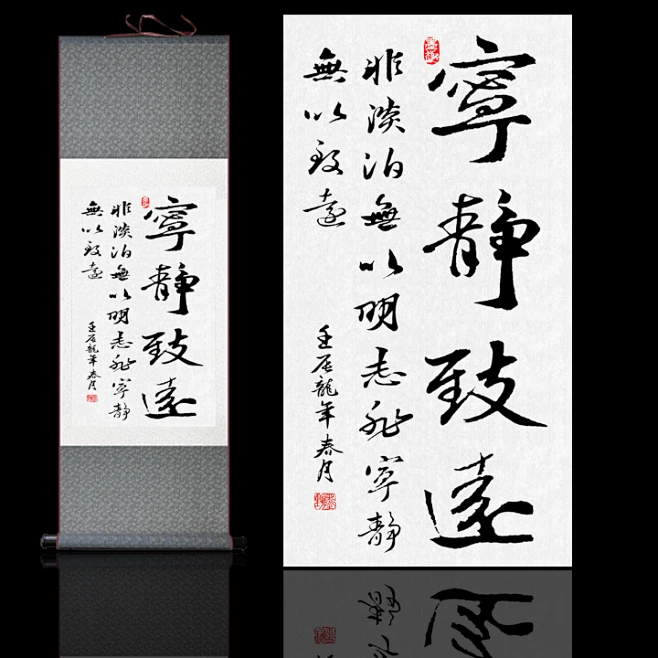 寧靜致遠
非淡泊無以明志非寧靜
無以致遠
壬辰龍年春月
寧靜致遠
非淡泊無以明志非寧靜
無以致遠
壬辰龍年春月